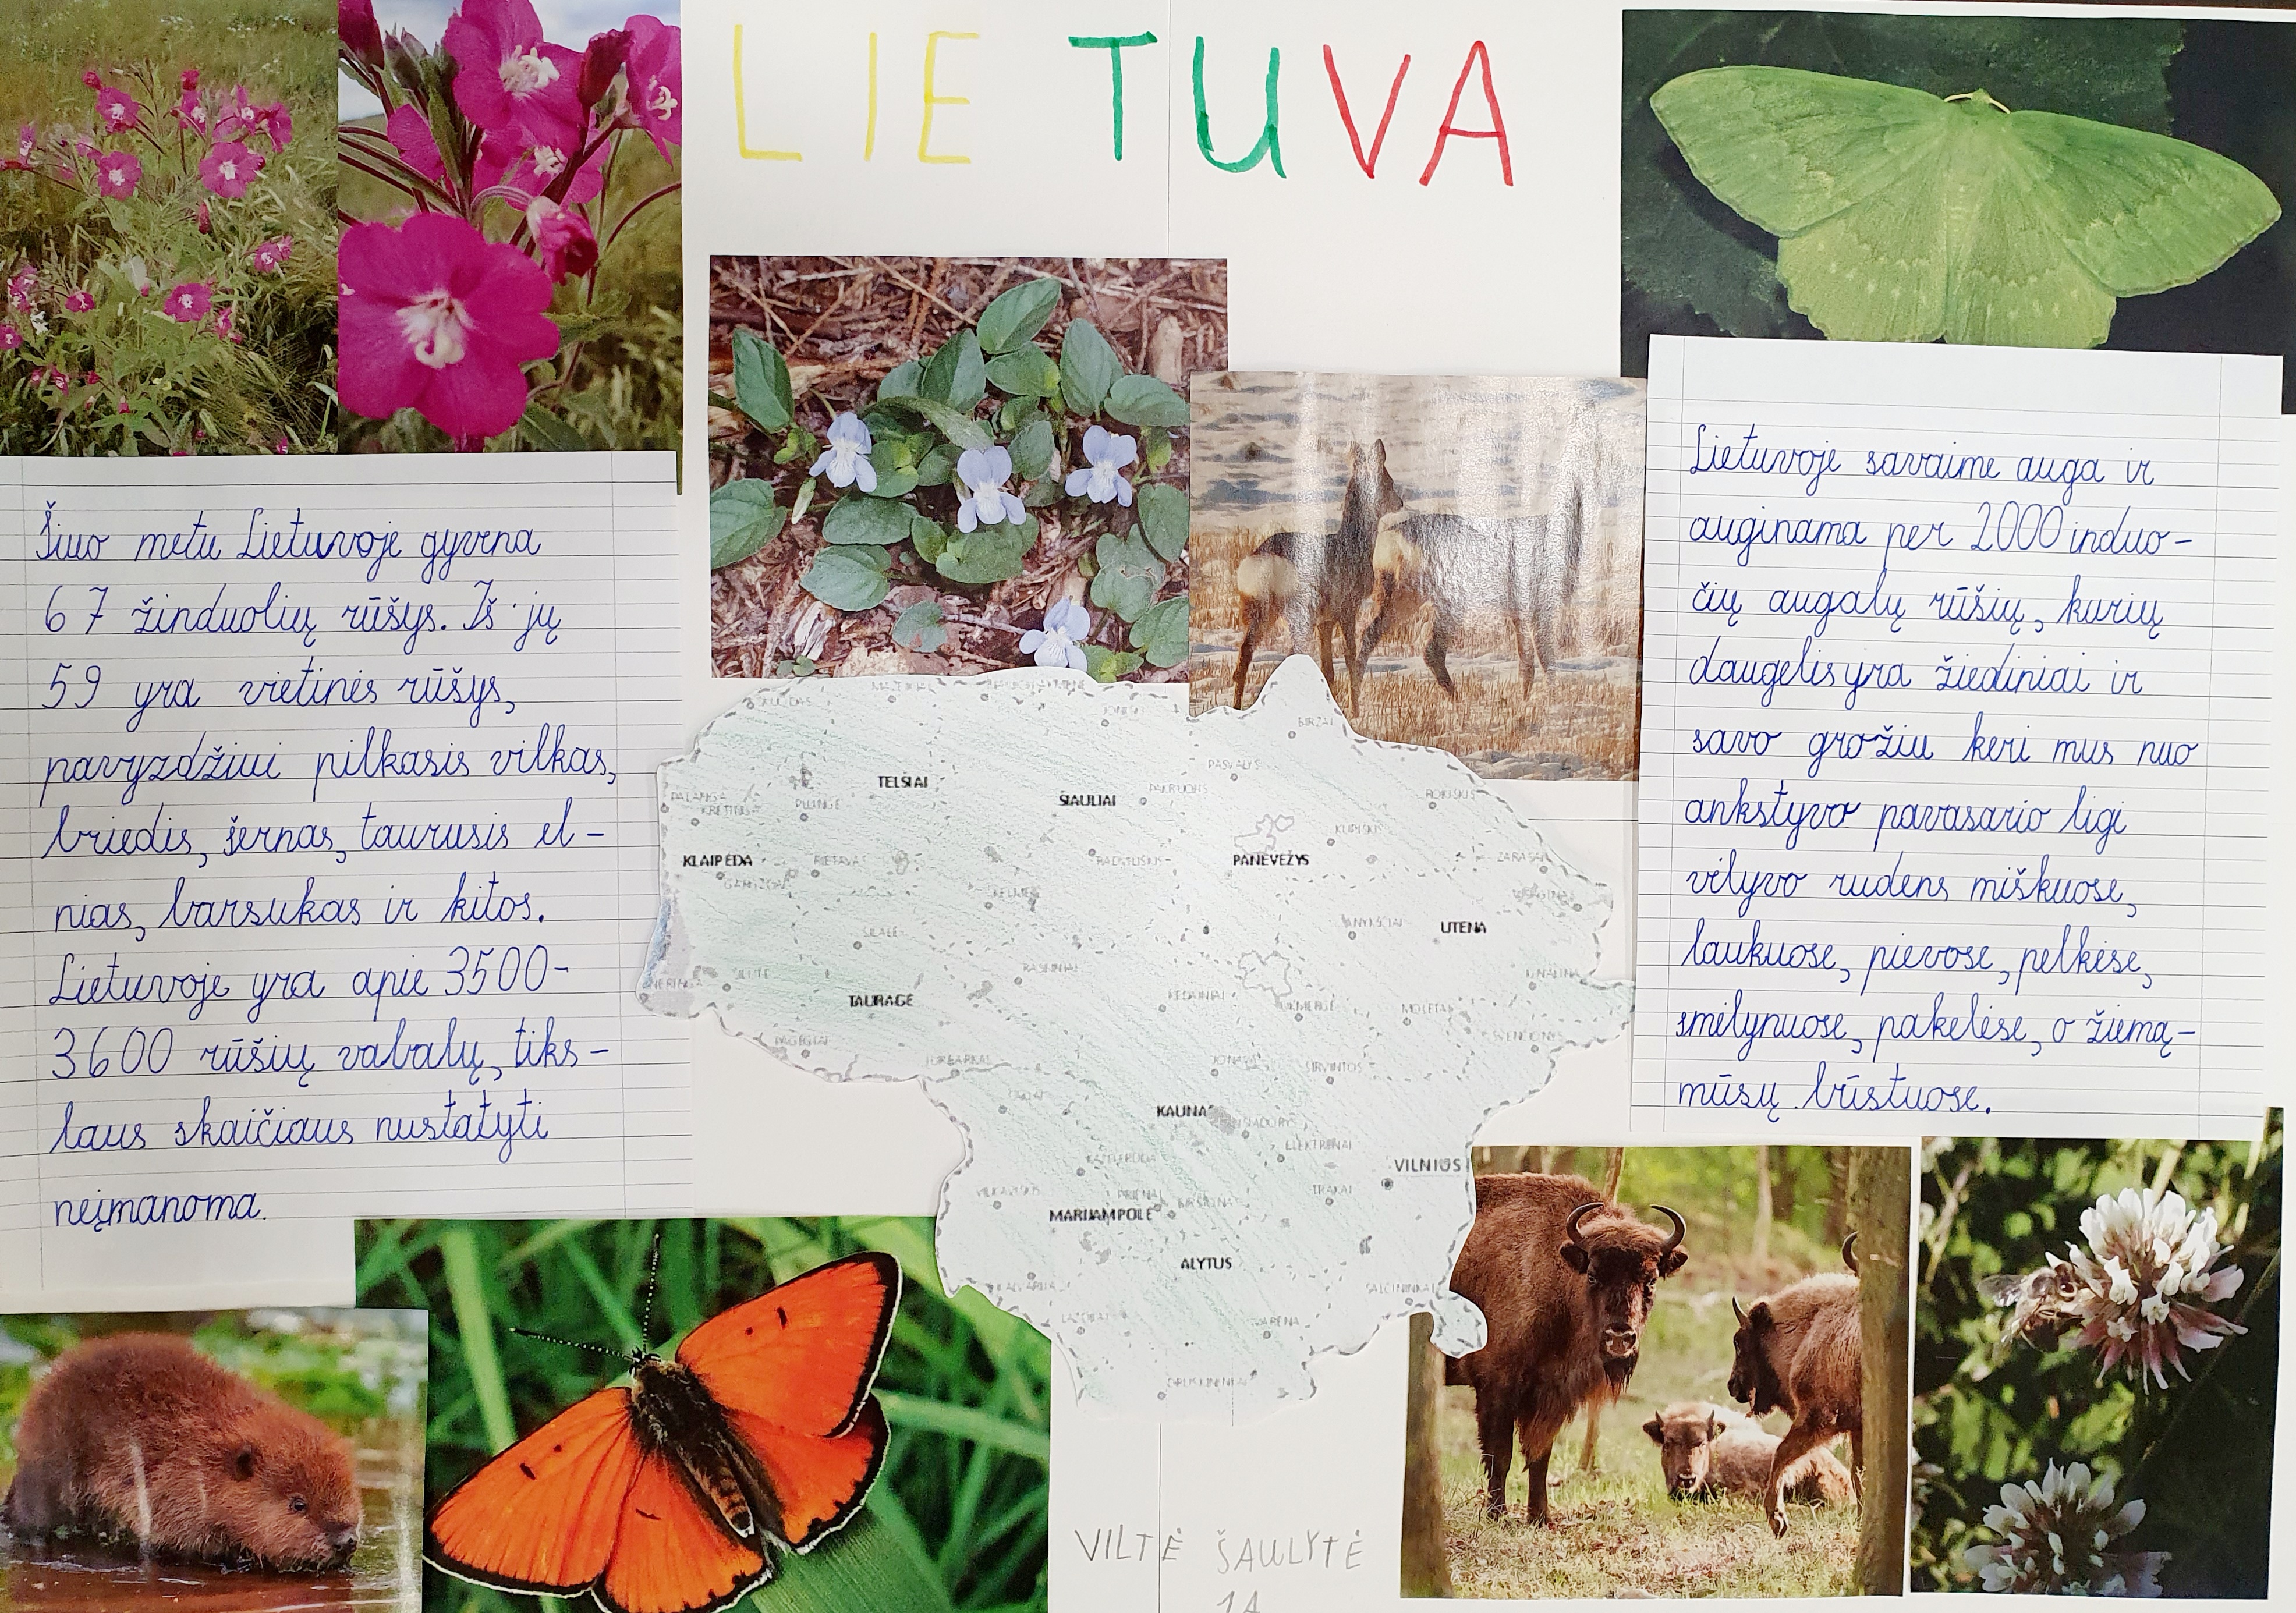 LIETUVA
Šiuo metu Lietuvoje gyvena
67 žinduolių rūšys. Iš jų
59 yra vietinės rūšys,
pavyzdžiui pilkasis vilkas,
briedis, šernas, taurusis el-
nias, barsukas ir kitos.
Lietuvoje yra apie 3500-
3600 rūšių vabalų, tiks-
laus skaičiaus nustatyti
neįmanoma.
Lietuvoje savaime auga ir
auginama per 2000 induo-
čių augalų rūšių, kurių
daugelis yra žiediniai ir
savo grožiu keri mus nuo
ankstyvo pavasario ligi
vėlyvo rudens miškuose,
laukuose, pievose, pelkėse,
smėlynuose, pakelėse, o žiemą-
mūsų būstuose.
SKUODAS
BIRŽAI
PASVALYS
TELŠIAI
ŠIAULIAI
PAKRUOJIS
ROKIŠKIS
PALANGA
KRETINGA
PLUNGĖ
KUPIŠKIS
KLAIPĖDA
RIETAVAS
RADVILIŠKIS
PANEVĖŽYS
ZARASAI
GARGŽDAI
KELMĖ
ŠILALĖ
ANYKŠČIAI
UTENA
ŠILUTĖ
RASEINIAI
IGNALINA
NERINGA
TAURAGĖ
KĖDAINIAI
UKMERGĖ
MOLĖTAI
PAGĖGIAI
JURBARKAS
JONAVA
ŠIRVINTOS
ŠVENČIONYS
KAUNAS
ELEKTRĖNAI
VILNIUS
VILKAVIŠKIS
PRIENAI
BIRŠTONAS
TRAKAI
MARIJAMPOLĖ
ALYTUS
KALVARIJA
ŠALČININKAI
LAZDIJAI
VARĖNA
DRUSKININKAI
VILTĖ ŠAULYTĖ
1A